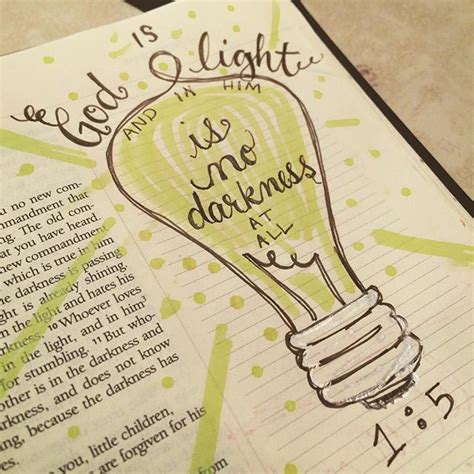 God IS light
AND IN HIM
is
no
darkness
AT
ALL
1:5
u no new com-
mandment that
The old com-
you have heard.
new commandment
which is true in him
darkness is passing
light is already shining
the light and hates his
¹⁰Whoever loves
in the light, and in him
for stumbling. ¹¹But who-
other is in the darkness and
darkness, and does not know
because the darkness has
you, little children,
are forgiven for his